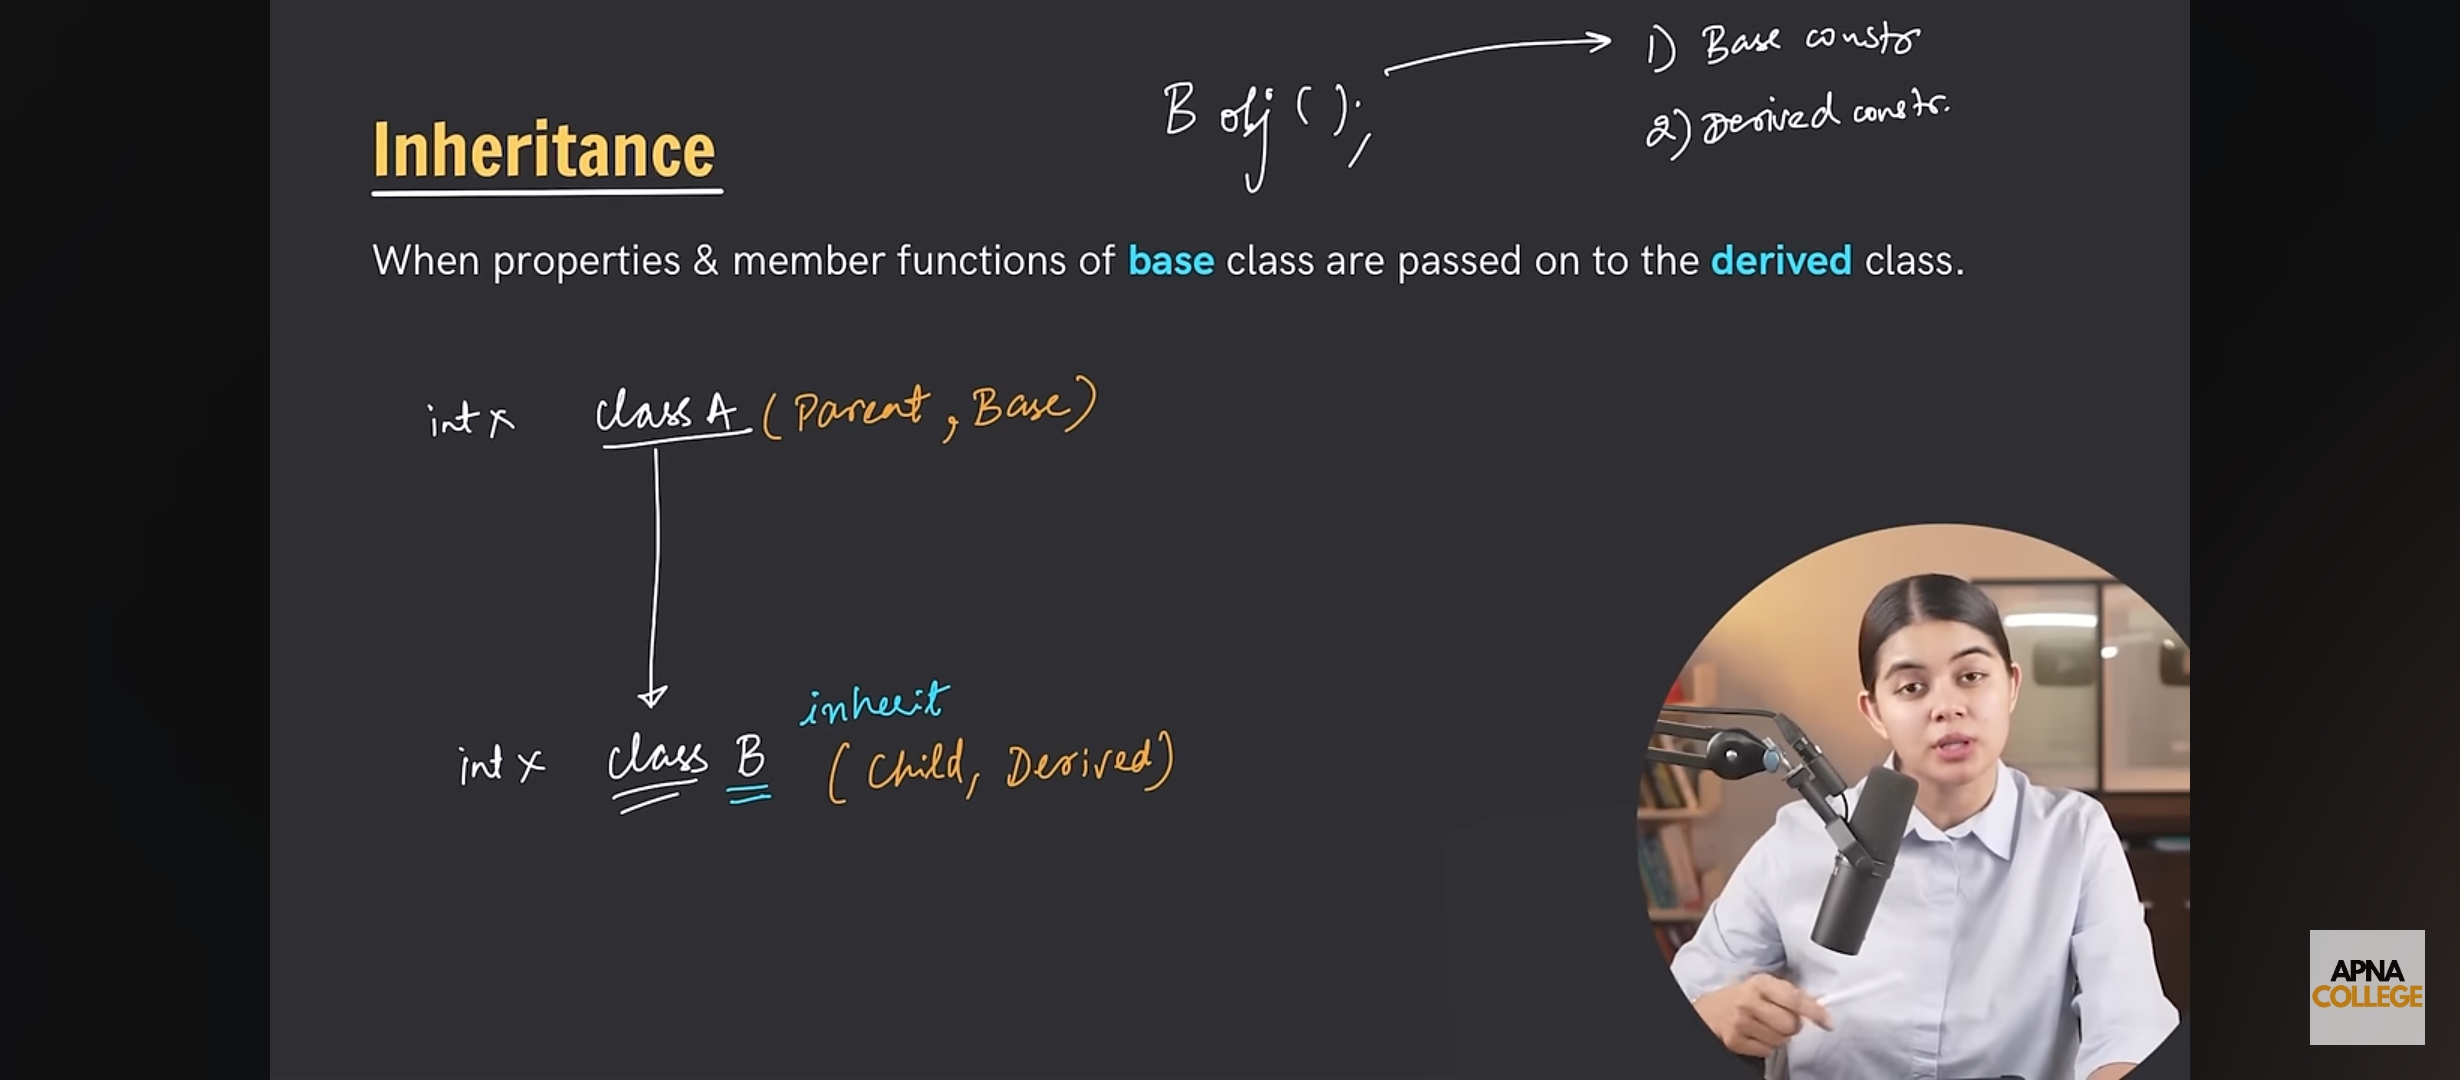 1) Base constr
B obj();
2) Derived constr.
Inheritance
When properties & member functions of base class are passed on to the derived class.
int x class A (Parent, Base)
inherit
int x class B (Child, Derived)
APNA
COLLEGE